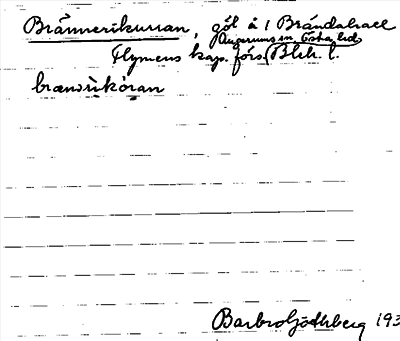 Brännerikurran, göl å 1 Brändahall
Augerums sn, Östra hd
Flymens kap. förs. Blek. l.
brænrikoran
Barbro Göthberg 193